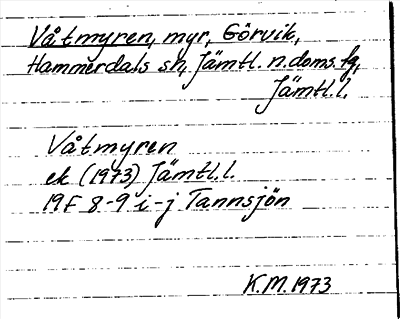 Våtmyren, myr, Görvik,
Hammerdals sn, Jämtl. n. doms. fg,
Jämtl. l.
Våtmyren
ek (1973) Jämtl. l.
19F 8-9 i-j Tannsjön
K.M. 1973